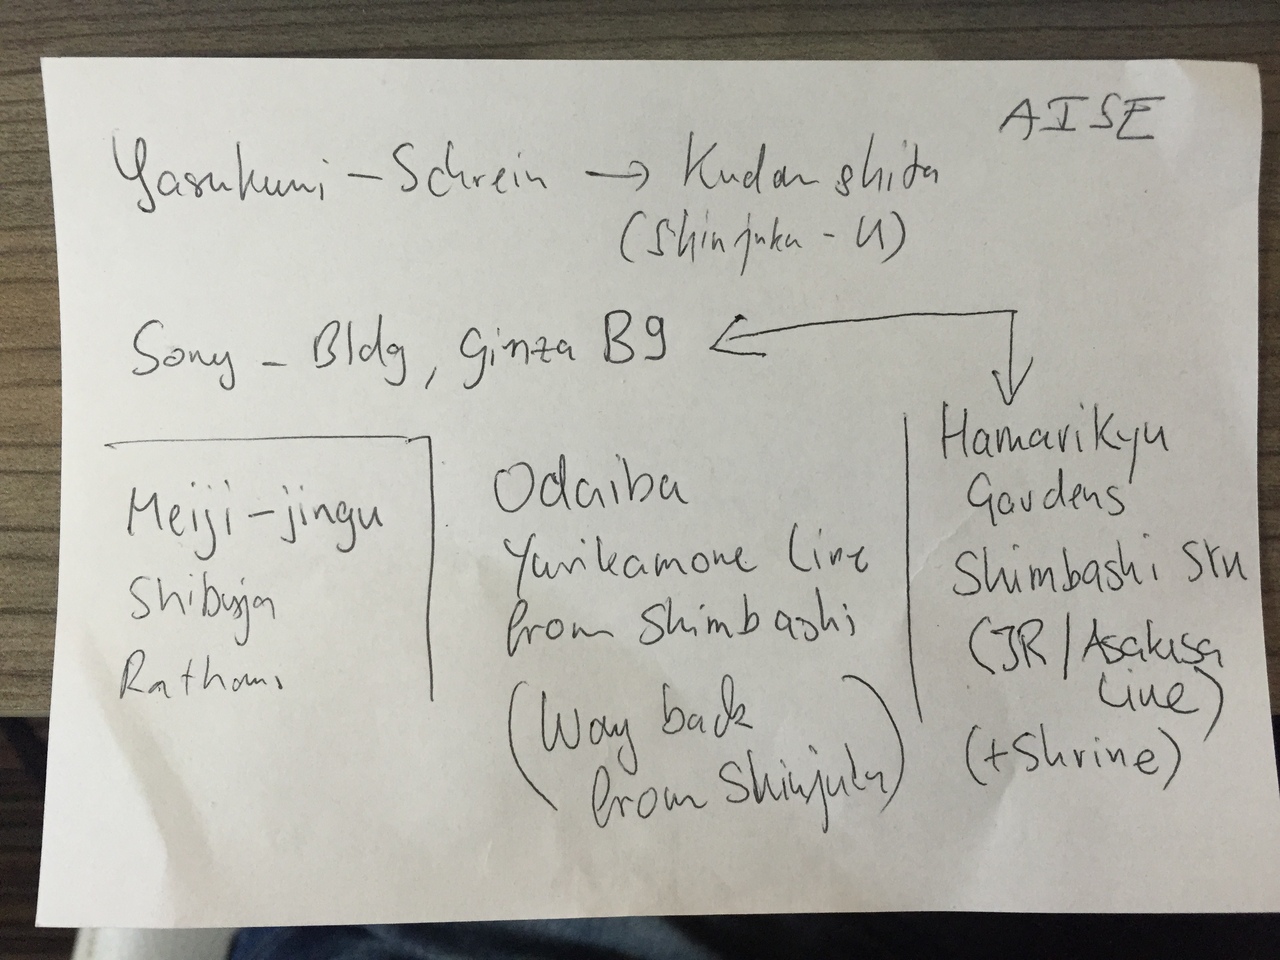 AISE
Yasukuni - Schrein → Kudanshita
(Shinjuku - U)
Sony - Bldg, Ginza B9
Meiji-jingu
Shibuja
Rathaus
Odaiba
Yurikamone Line
from Shimbashi
(Way back
from Shinjuku)
Hamarikyu
Gardens
Shimbashi Stn
(JR/Asakusa
Line)
(+Shrine)